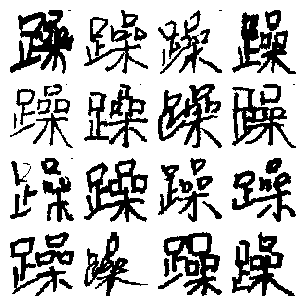 躁躁躁躁
躁躁躁躁
躁躁躁躁
躁躁躁躁